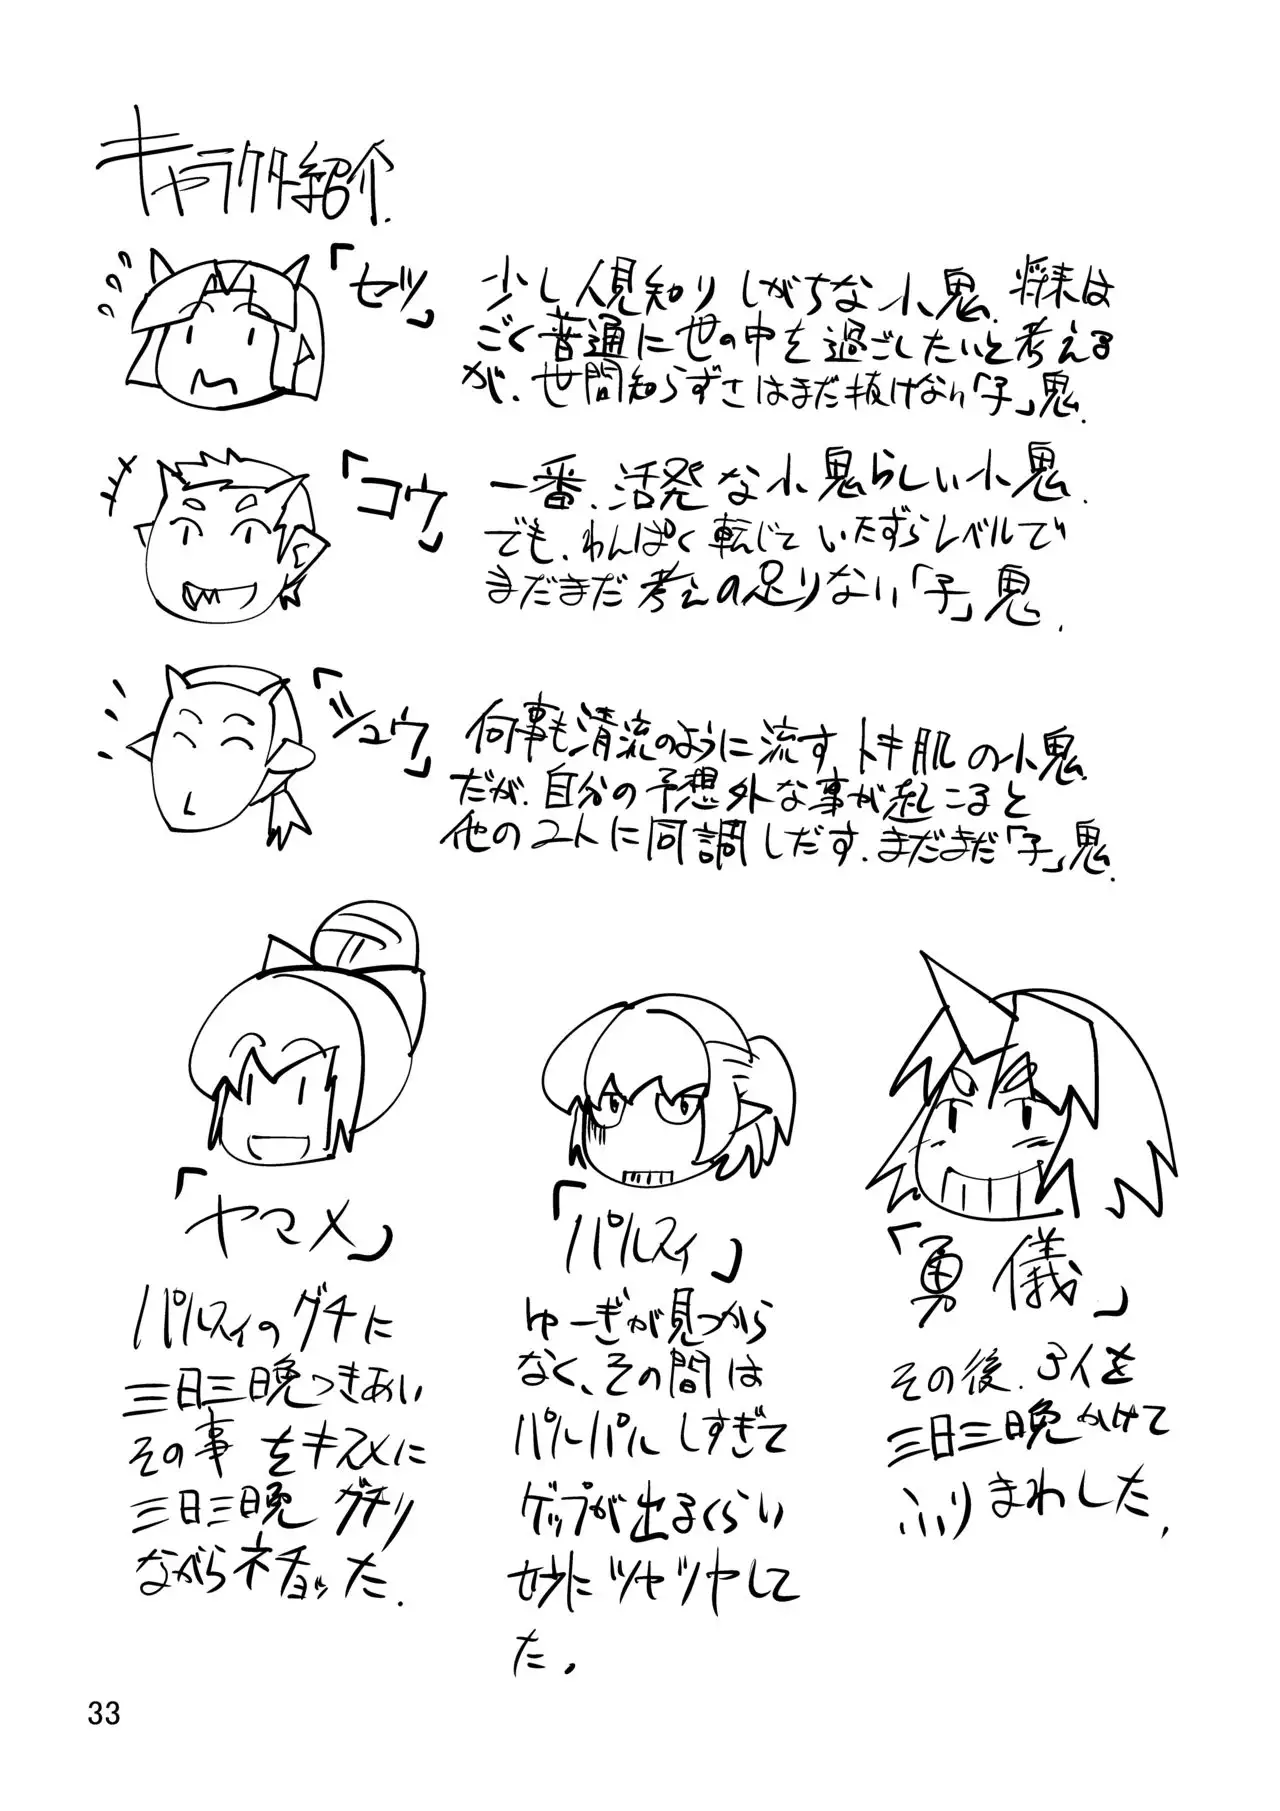 キャラクター紹介.
「セツ」
少し人見知りしがちな小鬼. 将来は
ごく普通に世の中を過ごしたいと考える
が、世間知らずさはまだ抜けない「子」鬼.
「コウ」
一番、活発な小鬼らしい小鬼.
でも、わんぱく転じていたずらレベルで
まだまだ考えの足りない「子」鬼.
「ジュウ」
何事も清流のように流す
の小鬼.
だが、自分の予想外な事が起こると
他の2人に同調しだす、まだまだ「子」鬼.
「ヤマメ」
パルスィのグチに
三日三晩つきあい
その事をキスメに
三日三晩グチり
ながらネチョッた.
「パルスィ」
ゆーぎが見つから
なく、その間は
パルパルしすぎて
ゲップが出るくらい
妙にツヤツヤして
た.
「勇儀」
その後、3人を
三日三晩かけて
ふりまわした.
33